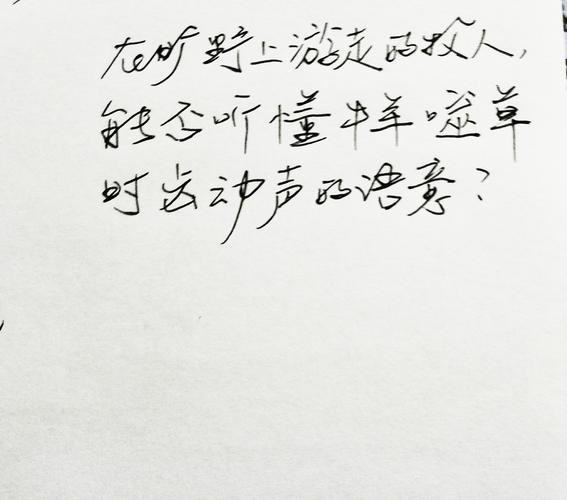 在旷野上游走的牧人,
能否听懂牛羊噬草
时齿动声的语意?